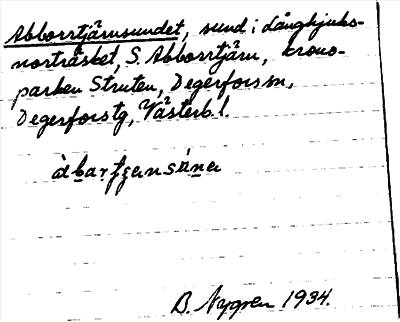 Abborrtjärnsundet, sund i Långhjuks-
norträsket, S. Abborrtjärn, krono-
parken Struten, Degerfors sn,
Degerfors tg, Västerb. l.
B. Nygren 1934.